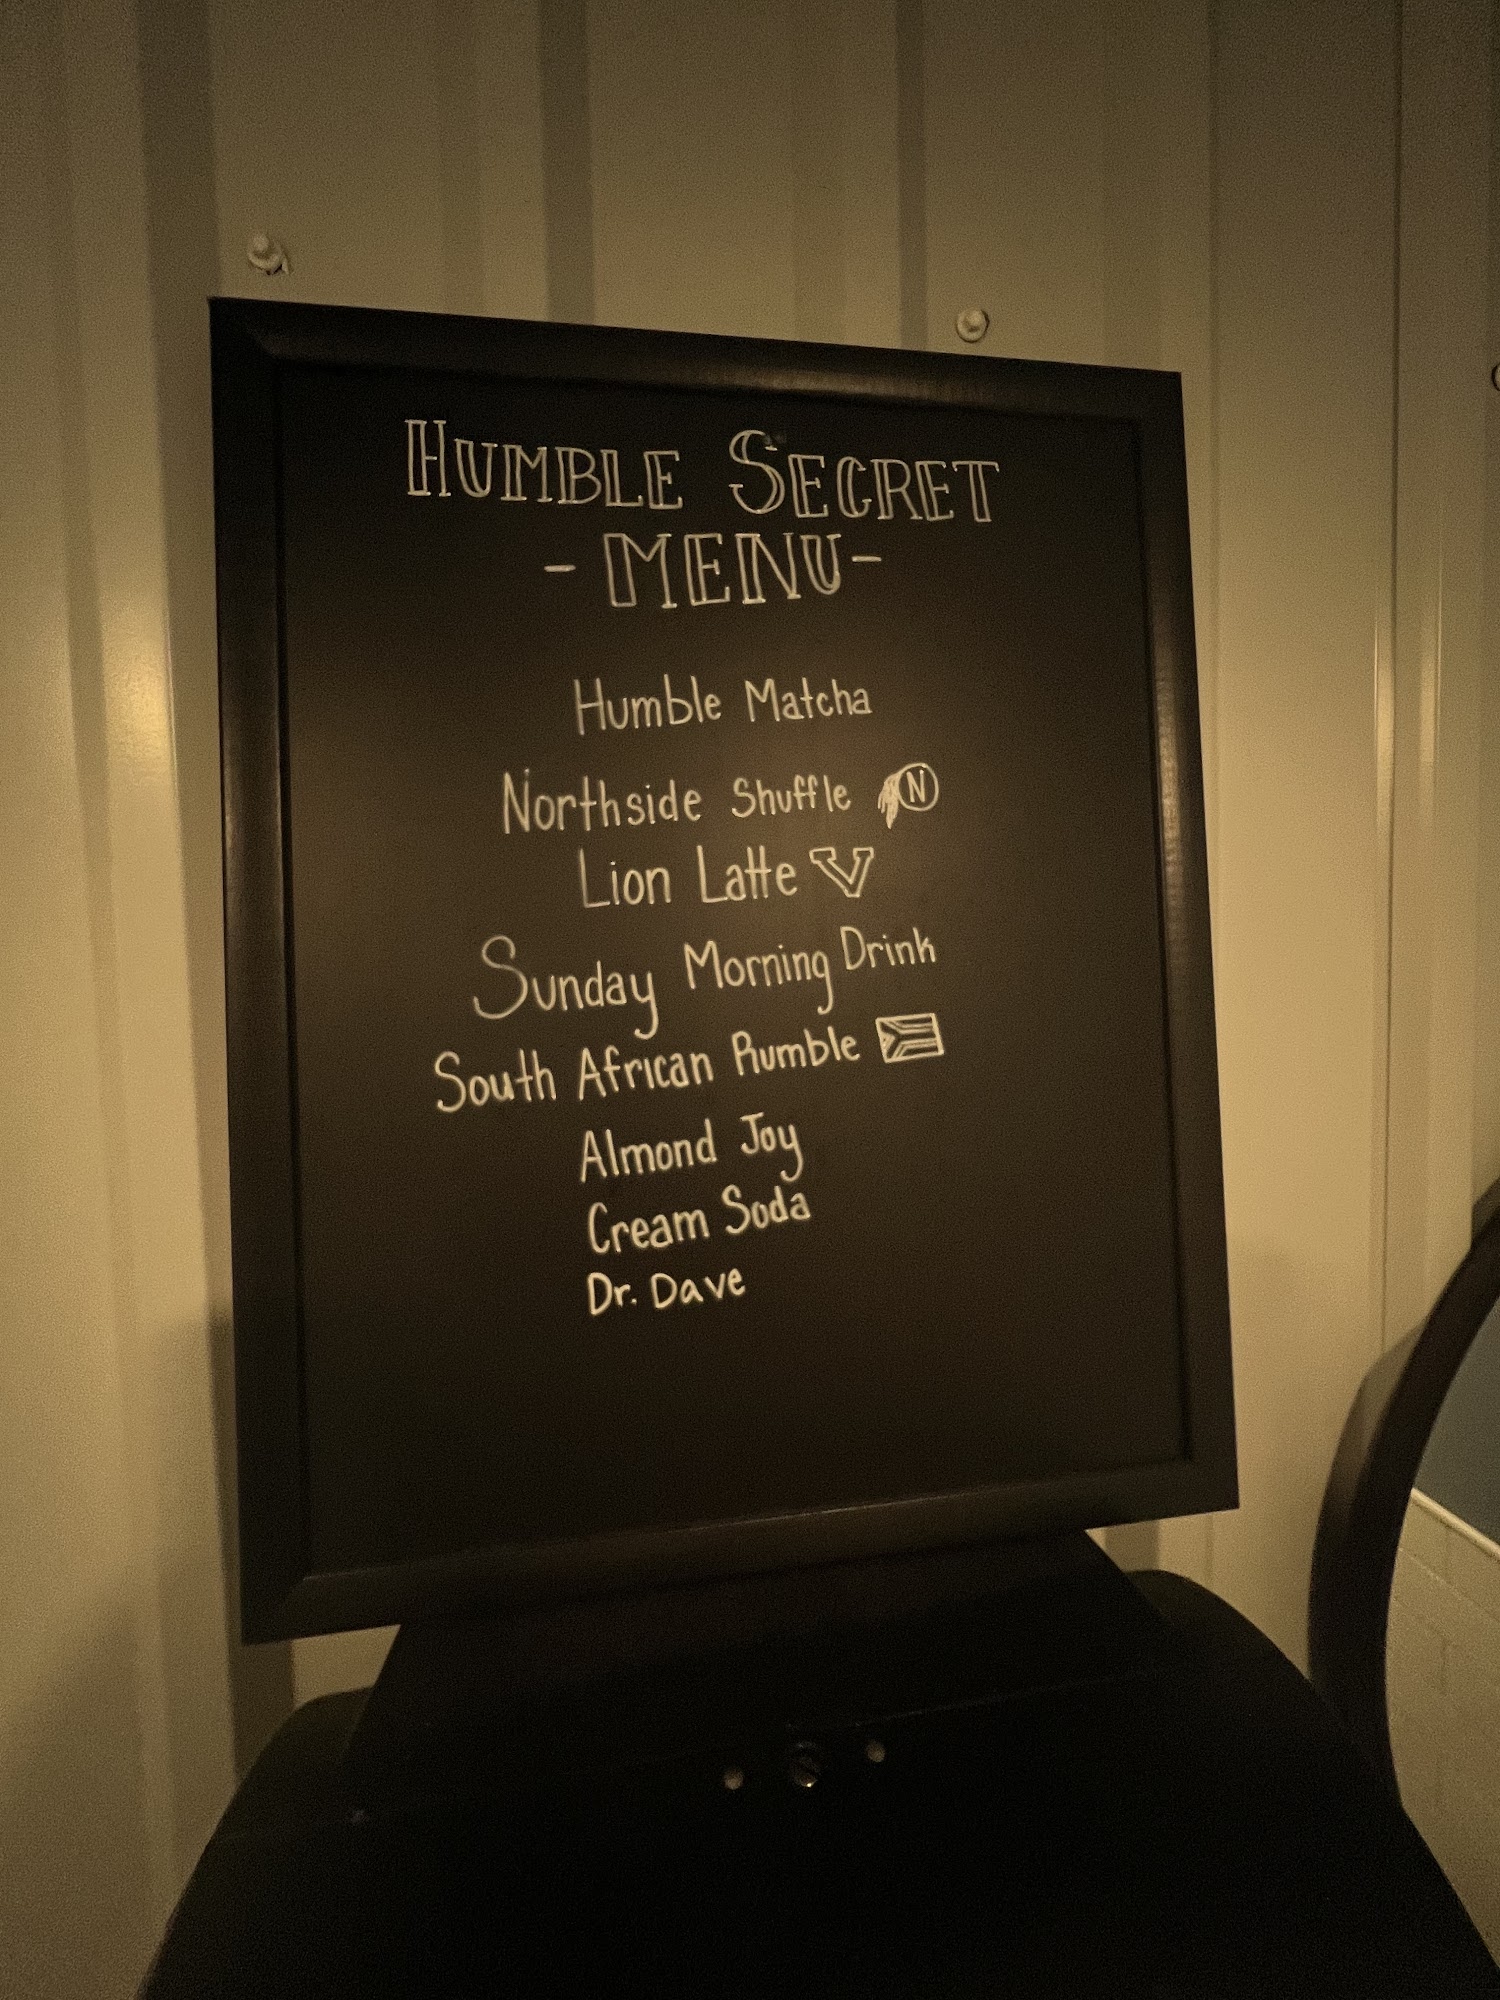 HUMBLE SECRET
- MENU -
Humble Matcha
Northside Shuffle N
Lion Latte V
Sunday Morning Drink
South African Rumble
Almond Joy
Cream Soda
Dr. Dave